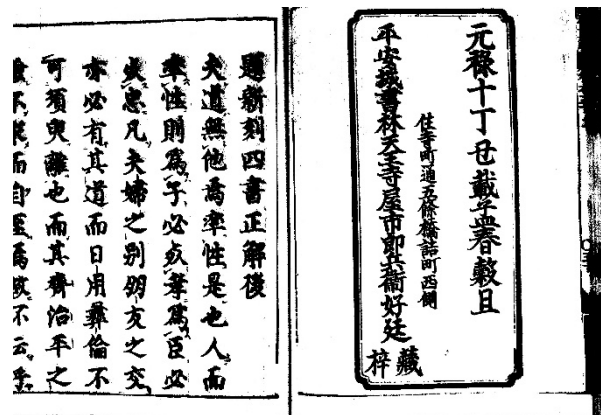 元禄十丁丑載孟春穀旦
住寺町通五條橋詰町西側
平安城書林天王寺屋市郎兵衞好廷
藏梓
題新刻四書正解後
夫道無他焉率性是也人而
率性則爲子必孝爲臣必
忠凡夫婦之别朋友之交
亦必有其道而日用彝倫不
可須臾離也而其齊治平之
不求而自至焉故不云乎